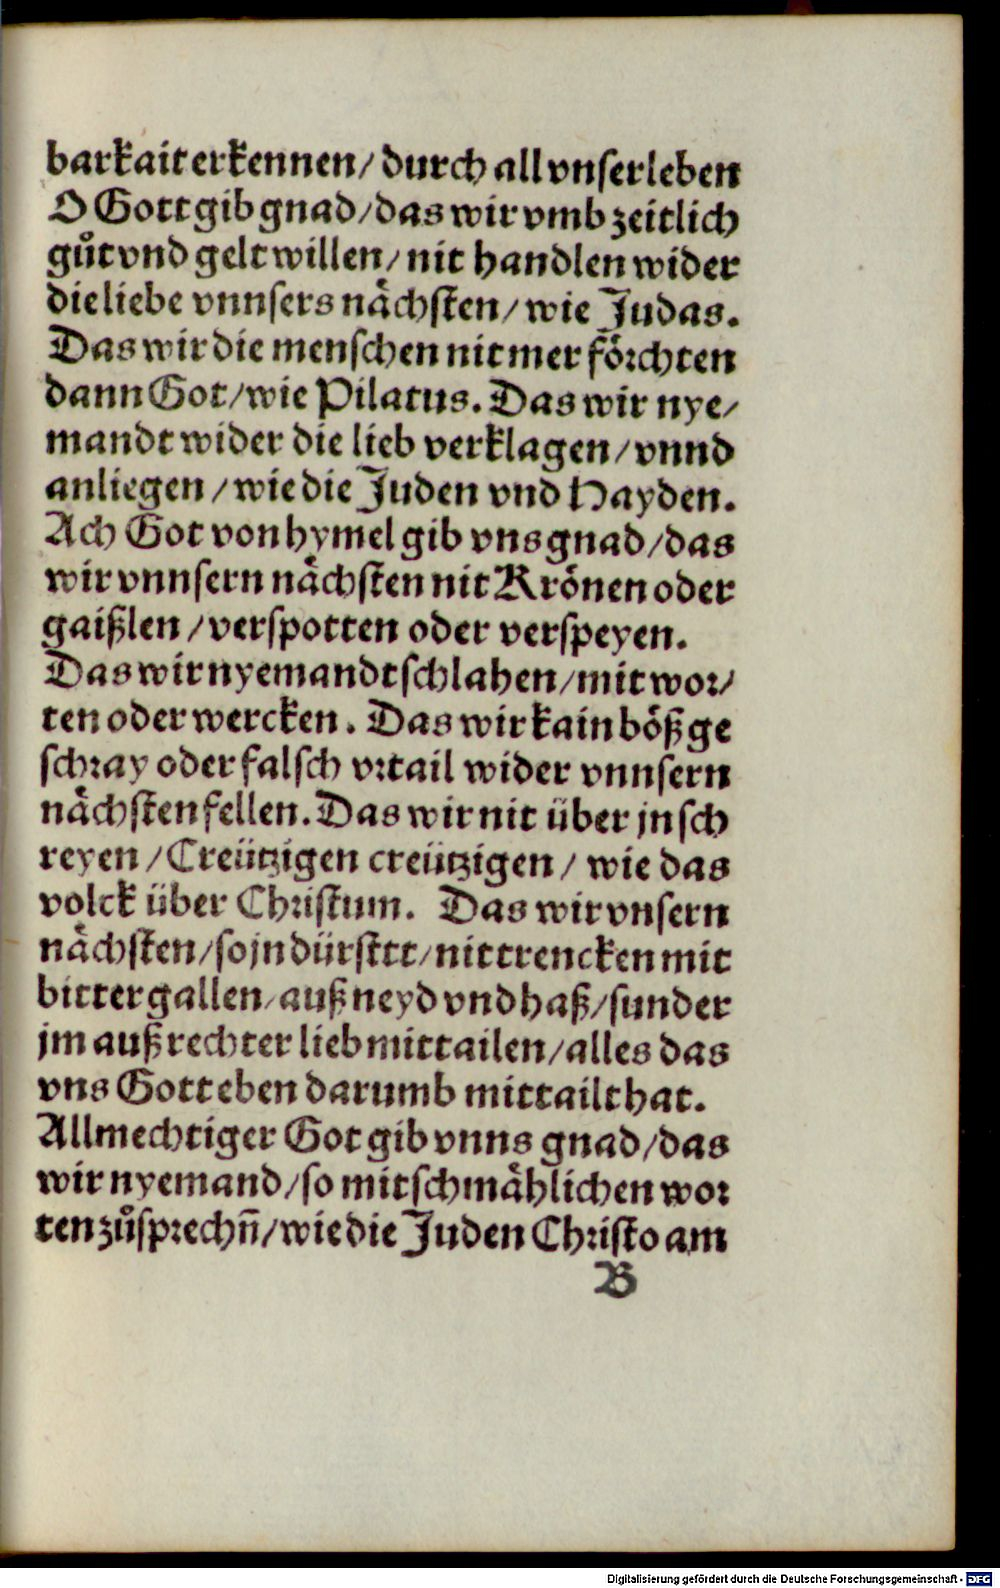 barkait erkennen/ durch all vnser leben
O Gott gib gnad/das wir vmb zeitlich
guͦt vnd gelt willen/ nit handlen wider
die liebe vnnsers naͤchsten/ wie Judas.
Das wir die menschen nit mer foͤrchten
dann Got/wie Pilatus. Das wir nye/
mandt wider die lieb verklagen/vnnd
anliegen/wie die Juden vnd Hayden.
Ach Got von hymel gib vns gnad/das
wir vnnsern naͤchsten nit Kroͤnen oder
gaißlen/verspotten oder verspeyen.
Das wir nyemandt schlahen/mit wor/
ten oder wercken. Das wir kain boͤß ge
schray oder falsch vrtail wider vnnsern
naͤchsten fellen. Das wir nit über jn sch
reyen/Creützigen creützigen/ wie das
volck über Christum. Das wir vnsern
naͤchsten/so jn dürsttt/nit trencken mit
bitter gallen/auß neyd vnd haß/sunder
jm auß rechter lieb mittailen/alles das
vns Gott eben darumb mittailt hat.
Allmechtiger Got gib vnns gnad/das
wir nyemand/so mit schmaͤhlichen wor
ten zuͦsprechn̄/wie die Juden Christo am
B
Digitalisierung gefördert durch die Deutsche Forschungsgemeinschaft - DFG